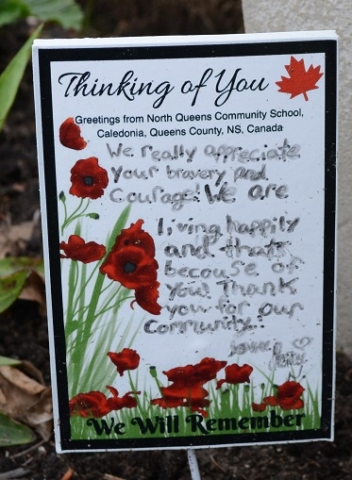 Thinking of You
Greetings from North Queens Community School,
Caledonia, Queens County, NS, Canada
We really appreciate
your bravery and
Courage! We are
living happily
and thats
becouse of
you! Thank
you for our
Community.
We Will Remember